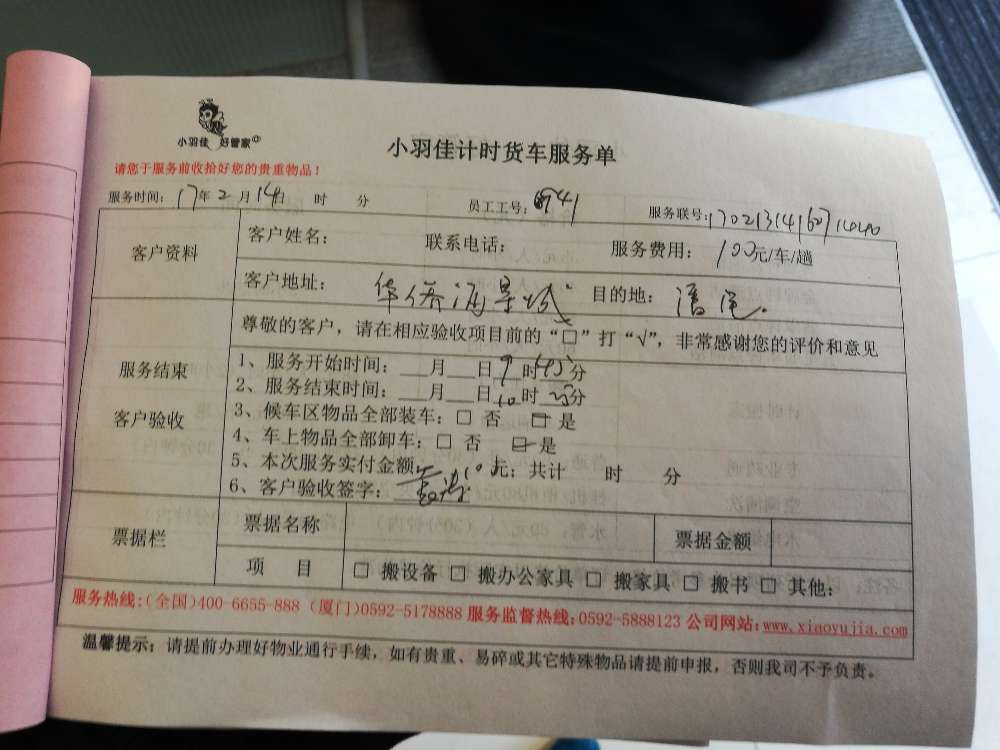 小羽佳 好管家
小羽佳计时货车服务单
请您于服务前收拾好您的贵重物品！
服务时间：17年2月14日 时 分 员工工号： 服务联号：
客户资料
客户姓名： 联系电话： 服务费用：100元/车/趟
客户地址：华侨海景城 目的地：
服务结束
客户验收
尊敬的客户，请在相应验收项目前的“□”打“√”，非常感谢您的评价和意见
1、服务开始时间：__月__日9时45分
2、服务结束时间：__月__日10时25分
3、候车区物品全部装车：□ 否 □ 是
4、车上物品全部卸车：□ 否 □ 是
5、本次服务实付金额 元；共计 时 分
6、客户验收签字：
票据栏
票据名称 票据金额
项 目 □ 搬设备 □ 搬办公家具 □ 搬家具 □ 搬书 □ 其他：
服务热线：(全国)400-6655-888 (厦门)0592-5178888 服务监督热线：0592-5888123 公司网站：www.xiaoyujia.com
温馨提示：请提前办理好物业通行手续，如有贵重、易碎或其它特殊物品请提前申报，否则我司不予负责。